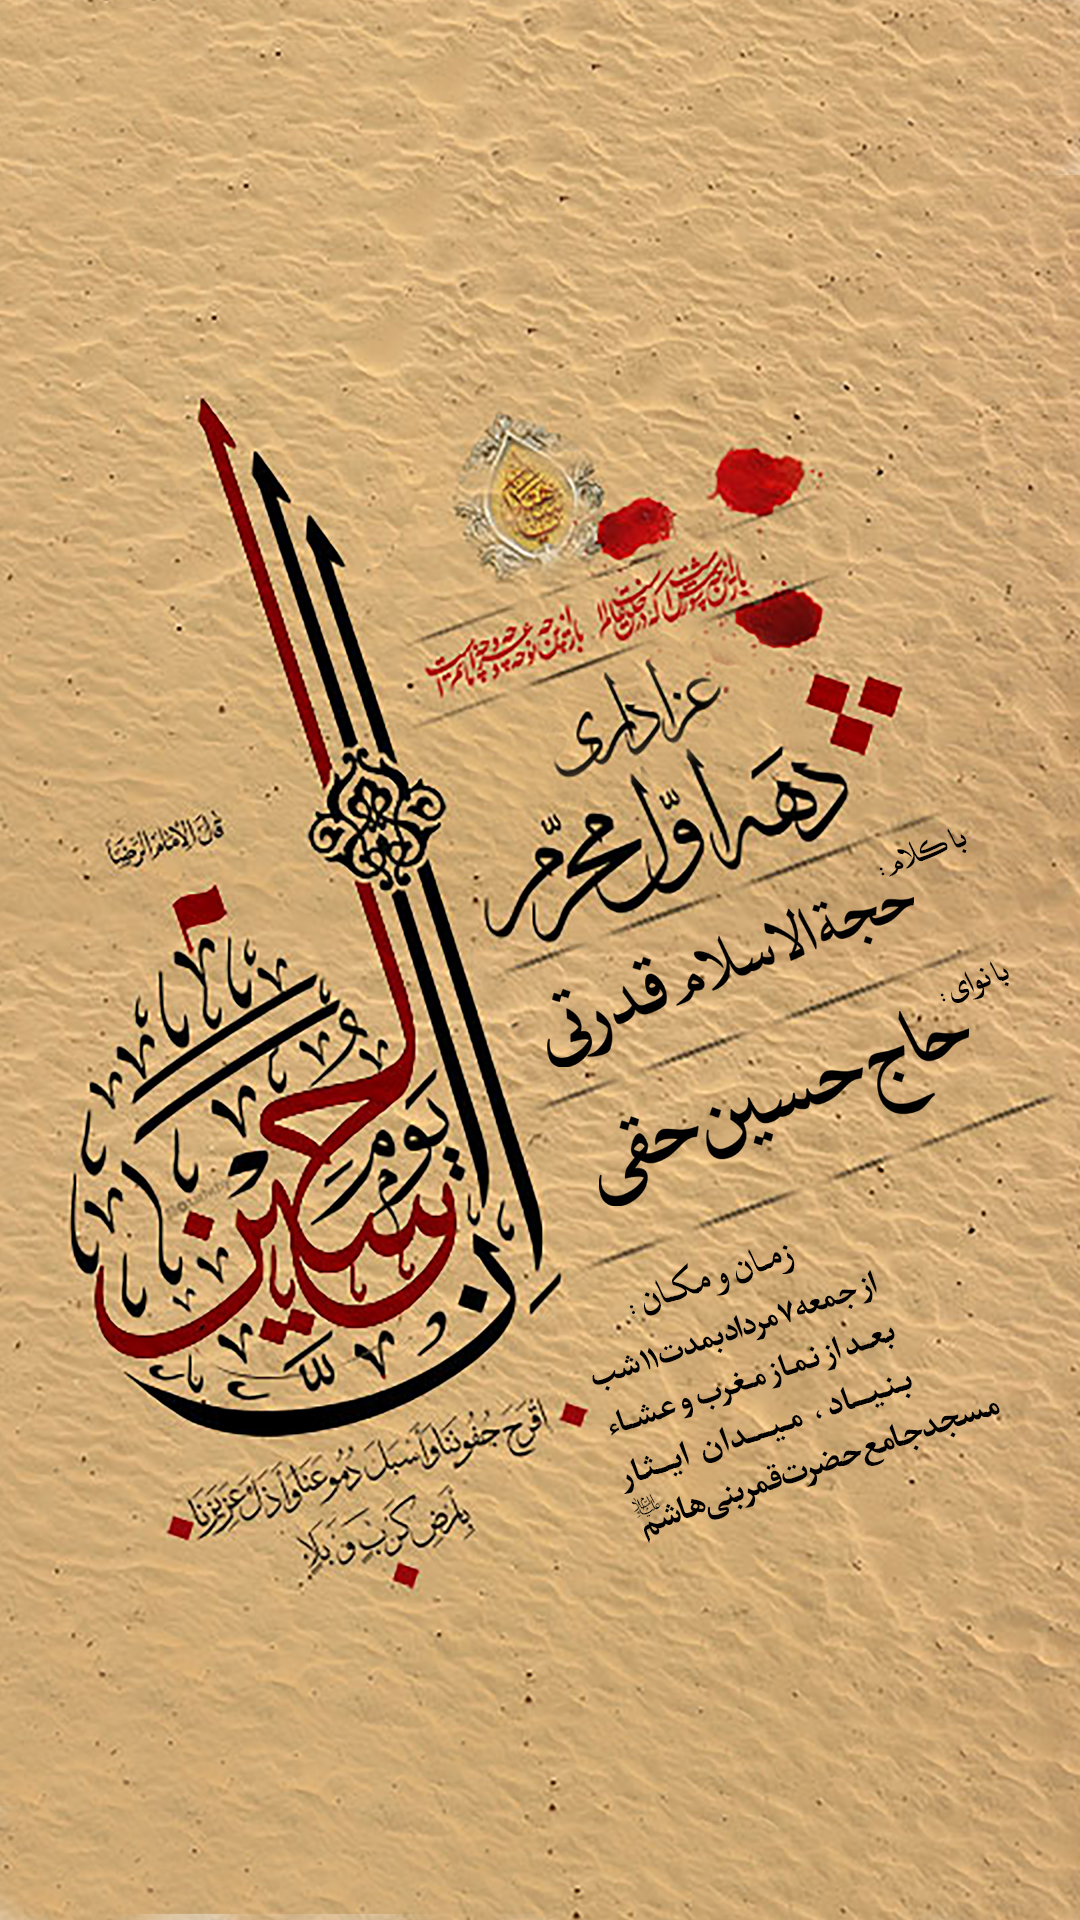 باز این چه شورش است که در خلق عالم است
باز این چه نوحه و چه عزا و چه ماتم است
عزاداری
دهه اوّل محرّم
با کلام:
حجة الاسلام قدرتی
با نوای:
حاج حسین حقی
زمان و مکان :...
از جمعه ۷ مرداد بمدت ۱۱ شب
بعد از نماز مغرب و عشاء
بنیاد ، میدان ایثار
مسجد جامع حضرت قمربنی هاشم
قالَ الاِمامُ الرِّضا
اِنَّ یَومَ الحُسَین
اَقْرَحَ جُفُونَنا وَ اَسْبَلَ دُمُوعَنا وَ اَذَلَّ عَزِیزَنا
بِاَرْضِ کَرْبٍ وَ بَلاٰءٍ